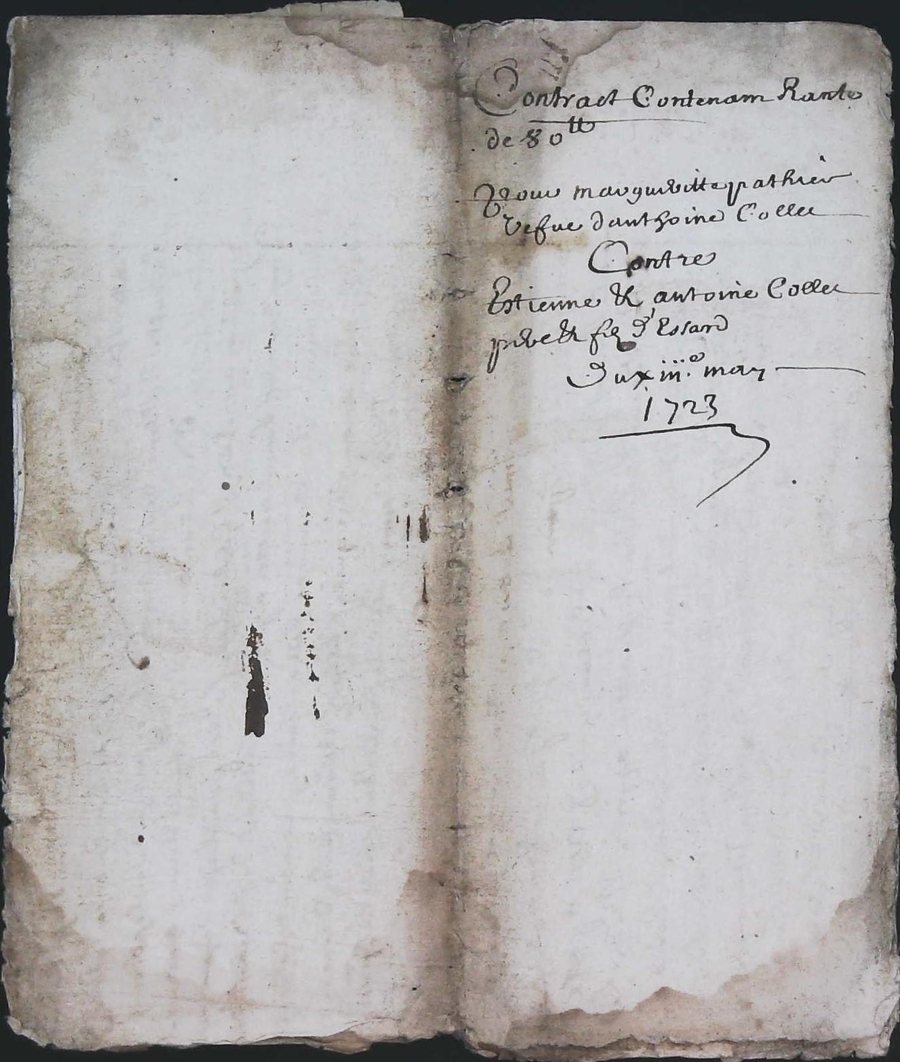 Contract Contenam Rante
de 80 tt
Pour margueritte pathier
Vefue d'anthoine Collec
Contre
Estienne & antoine Collec
pere & filz d'Essard
Du xiii.e may
1723